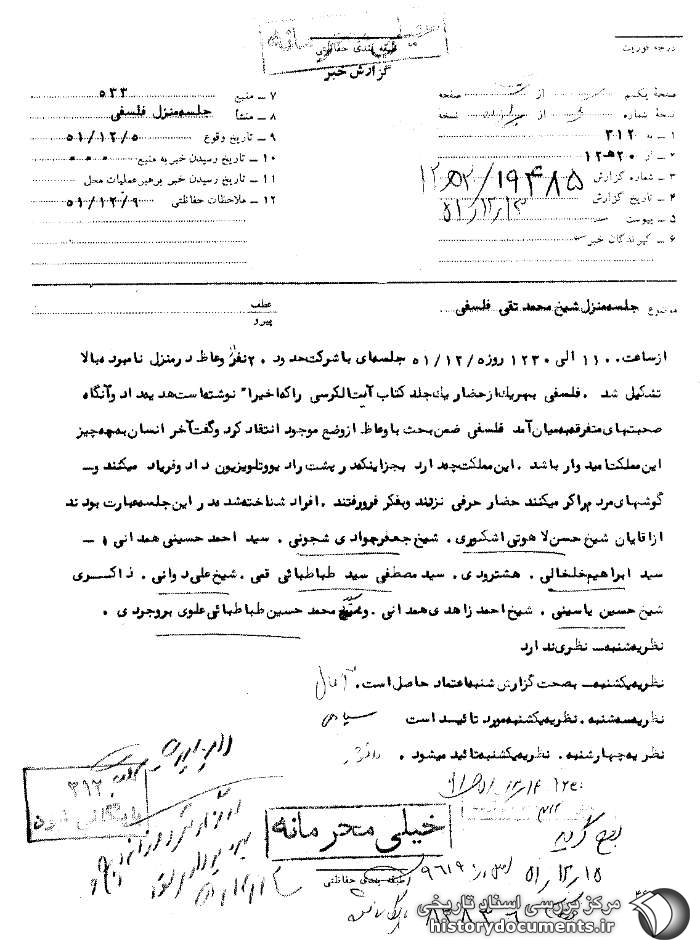 خیلی محرمانه
طبقه بندی حفاظتی
گزارش خبر
درجه فوریت
صفحهٔ یکم از صفحه
نسخهٔ شماره از نسخه
۱ ـ به ۳۱۲
۲ ـ از ۲۰ ه‍ ۱۲
۳ ـ شماره گزارش ۱۹۴۸۵/ ۱۲ه‍۲۰
۴ ـ تاریخ گزارش ۵۱/۱۲/۱۳
۵ ـ پیوست
۶ ـ گیرندگان خبر
۷ ـ منبع ۵۳۳
۸ ـ منشأ جلسه منزل فلسفی
۹ ـ تاریخ وقوع ۵۱/۱۲/۵
۱۰ ـ تاریخ رسیدن خبر به منبع
۱۱ ـ تاریخ رسیدن خبر برهبر عملیات محل
۱۲ ـ ملاحظات حفاظتی ۵۱/۱۲/۹
موضوع جلسه منزل شیخ محمد تقی فلسفی
عطف
پیرو
از ساعت ۱۱۰۰ الی ۱۲۳۰ روز ۵۱/۱۲/۵ جلسه‌ای با شرکت حدود ۲۰ نفر وعاظ در منزل نامبرده بالا
تشکیل شد . فلسفی بهریک از حضار یک جلد کتاب آیت الکرسی راکه اخیراً نوشته است هدیه داد و آنگاه
صحبتهای متفرقه بمیان آمد فلسفی ضمن بحث با وعاظ از وضع موجود انتقاد کرد و گفت آخر انسان به چه چیز
این مملکت امیدوار باشد . این مملکت چه دارد بجز اینکه در پشت رادیو و تلویزیون داد و فریاد میکنند و ـ
گوشهای مردم را کر میکنند حضار حرفی نزدند و بفکر فرو رفتند . افراد شناخته شده در این جلسه عبارت بودند
از آقایان شیخ حسن لاهوتی اشکوری . شیخ جعفر جوادی شجونی . سید احمد حسینی همدانی ۱ ـ
سید ابراهیم خلخالی . هشترودی . سید مصطفی سید طباطبائی قمی . شیخ علی دوانی . ذاکسری
شیخ حسین یاسینی . شیخ احمد زاهدی همدانی . و سید محمد حسین طباطبائی علوی بروجردی .
نظریه شنبه ـ نظری ندارد
نظریه یکشنبه ـ بصحت گزارش شنبه اعتماد حاصل است .
نظریه سه شنبه . نظریه یکشنبه مورد تائید است
نظریه چهارشنبه . نظریه یکشنبه تائید میشود .
۳۱۲
بایگانی شود
خیلی محرمانه
طبقه بندی حفاظتی
۵۱/۱۲/۱۵
مرکز بررسی اسناد تاریخی
historydocuments.ir